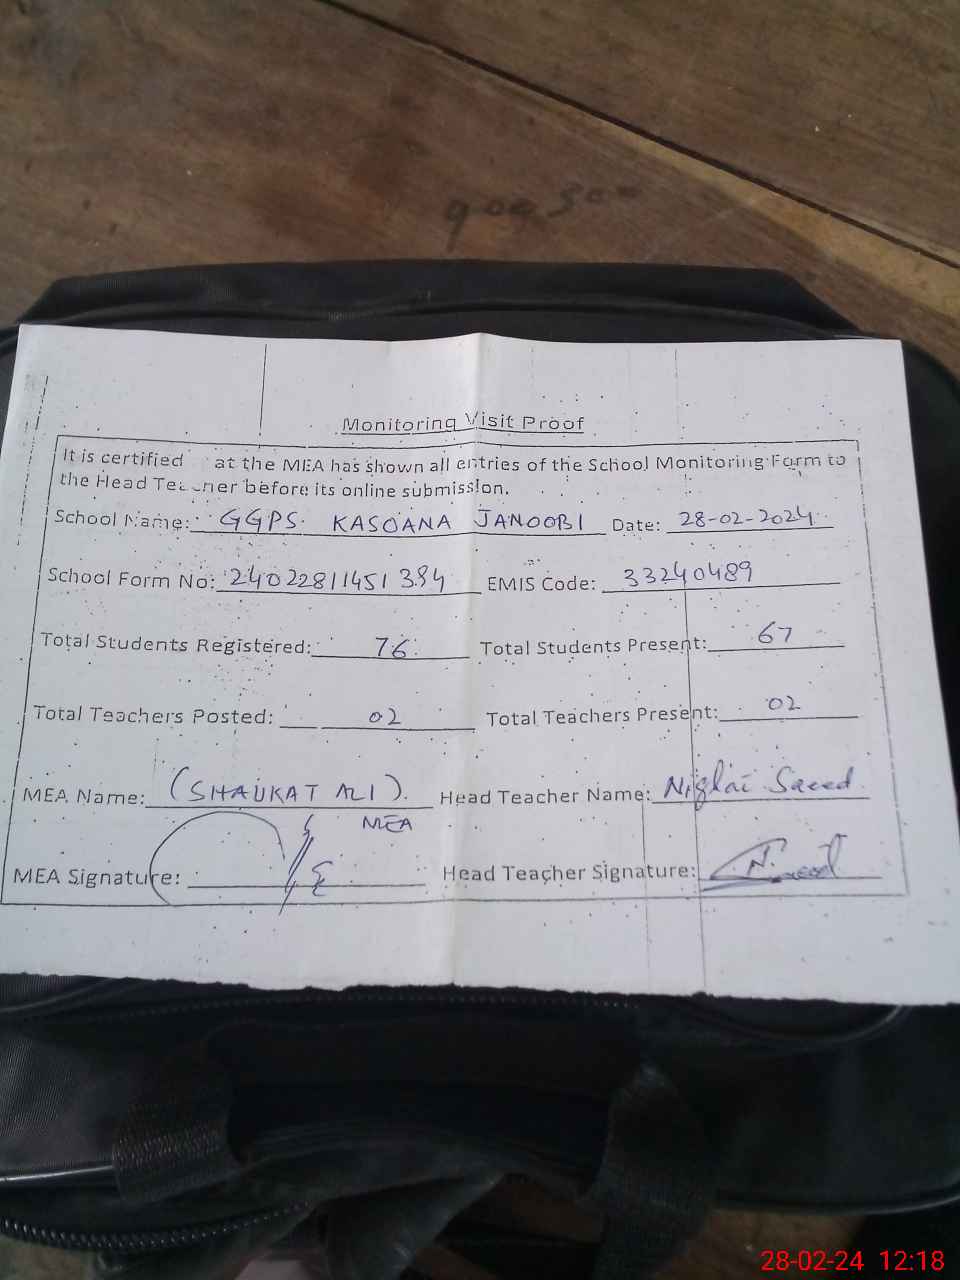 Monitoring Visit Proof
It is certified at the MEA has shown all entries of the School Monitoring Form to
the Head Teacher before its online submission.
School Name: GGPS. KASOANA JANOOBI Date: 28-02-2024
School Form No: 24022811451384 EMIS Code: 33240489
Total Students Registered: 76 Total Students Present: 67
Total Teachers Posted: 02 Total Teachers Present: 02
MEA Name: (SHAUKAT ALI). Head Teacher Name: Saeed
MEA
MEA Signature: Head Teacher Signature:
28-02-24 12:18